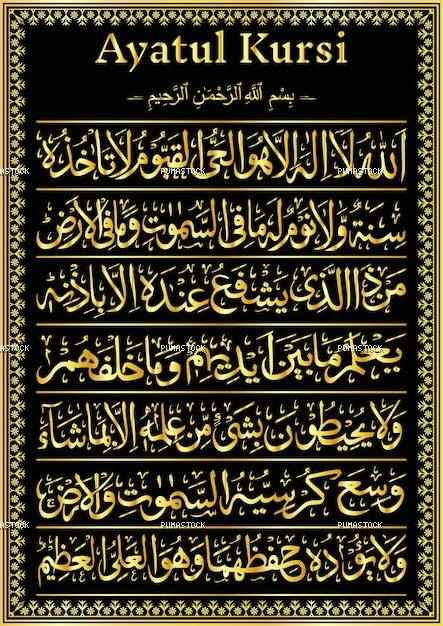 Ayatul Kursi
بِسْمِ ٱللَّهِ ٱلرَّحْمَٰنِ ٱلرَّحِيمِ
اَللّٰهُ لَاۤ اِلٰهَ اِلَّا هُوَ الْحَیُّ الْقَیُّوْمُ لَا تَاْخُذُهٗ
سِنَةٌ وَّلَا نَوْمٌ لَهٗ مَا فِی السَّمٰوٰتِ وَمَا فِی الْاَرْضِ
مَنْ ذَا الَّذِیْ یَشْفَعُ عِنْدَهٗ اِلَّا بِاِذْنِهٖ
یَعْلَمُ مَا بَیْنَ اَیْدِیْهِمْ وَمَا خَلْفَهُمْ
وَلَا یُحِیْطُوْنَ بِشَیْءٍ مِّنْ عِلْمِهٖۤ اِلَّا بِمَا شَآءَ
وَسِعَ كُرْسِیُّهُ السَّمٰوٰتِ وَالْاَرْضَ
وَلَا یَئُوْدُهٗ حِفْظُهُمَا وَهُوَ الْعَلِیُّ الْعَظِیْمُ
PUMASTOCK
PUMASTOCK
PUMASTOCK
PUMASTOCK
PUMASTOCK
PUMASTOCK